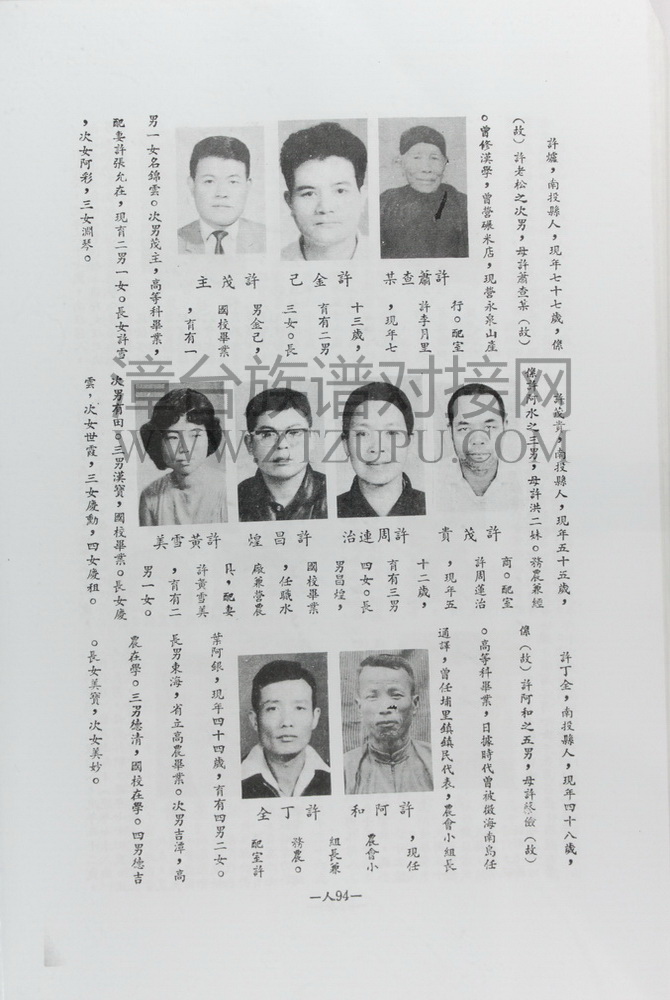 許墟，南投縣人，現年七十七歲，係
（故）許老松之次男，母許蕭查某（故）
。曾修漢學，曾營碾米店，現營永泉山產
許蕭查某
許金己
許茂主
行。配室
許李月里
，現年七
十三歲，
育有二男
三女。長
男金己，
國校畢業
，育有一
男一女名錦雲。次男茂主，高等科畢業，
配妻許張允在，現育二男一女。長女許雪
，次女阿彩，三女淵琴。
許茂貴，南投縣人，現年五十五歲，
係許阿水之三男，母許洪二妹。務農兼經
許茂貴
許周連治
許昌煌
許黃雪美
商。配室
許周蓮治
，現年五
十二歲，
育有三男
四女。長
男昌煌，
國校畢業
，任職水
廠兼營農
具，配妻
許黃雪美
，育有二
男一女。
次男有田。三男漢寶，國校畢業。長女慶
雲，次女世霞，三女慶勳，四女慶租。
許丁全，南投縣人，現年四十八歲，
係（故）許阿和之五男，母許（故）
。高等科畢業，日據時代曾被徵海南島任
通譯，曾任埔里鎮鎮民代表，農會小組長
許阿和
許丁全
，現任
農會小
組長兼
務農。
配室許
葉阿銀，現年四十四歲，育有四男二女。
長男東海，省立高農畢業。次男吉漳，高
農在學。三男德清，國校在學。四男德吉
。長女美寶，次女美妙。
—人94—
漳台族谱对接网
WWW.ZTZUPU.COM